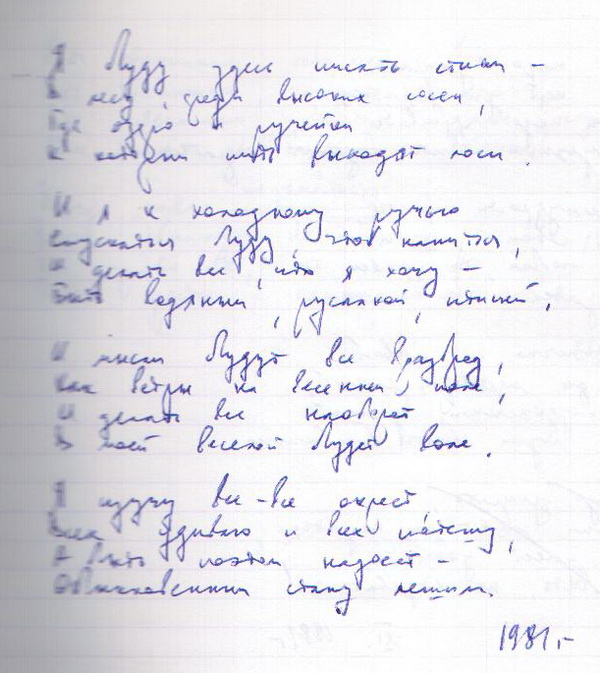 Я буду здесь писать стихи –
В лесу, среди высоких сосен,
Где озеро и ручейки
К которым пить выходят лоси.
И я к холодному ручью
Спускаться буду, чтоб напиться,
И делать все, что я хочу –
Быть водяным, русалкой, птицей.
И мысли будут все вразброд,
Как ветры на весеннем поле,
И делать все наоборот
В моей веселой будет воле.
Я изучу все-все окрест,
Всех удивлю и всех потешу,
А быть поэтом надоест –
Обыкновенным стану лешим.
1981 г.